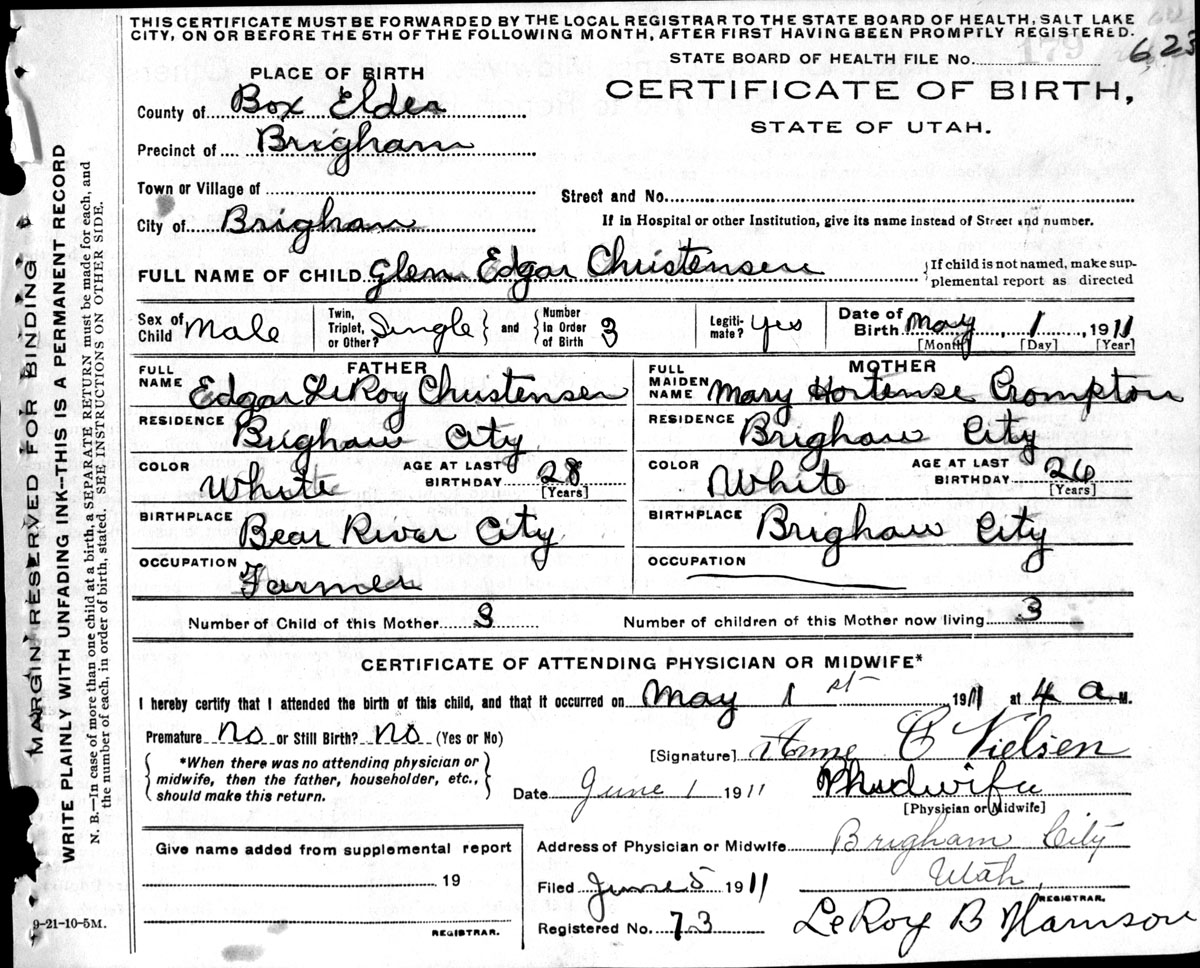 THIS CERTIFICATE MUST BE FORWARDED BY THE LOCAL REGISTRAR TO THE STATE BOARD OF HEALTH, SALT LAKE
CITY, ON OR BEFORE THE 5TH OF THE FOLLOWING MONTH, AFTER FIRST HAVING BEEN PROMPTLY REGISTERED.
179 623
STATE BOARD OF HEALTH FILE No.
PLACE OF BIRTH
CERTIFICATE OF BIRTH,
STATE OF UTAH.
County of Box Elder
Precinct of Brigham
Town or Village of
Street and No.
City of Brigham
If in Hospital or other Institution, give its name instead of Street and number.
FULL NAME OF CHILD Glen Edgar Christensen
If child is not named, make sup-
plemental report as directed
Sex of Child Male
Twin, Triplet, or Other? Single and Number in Order of Birth 3
Legiti- mate? Yes
Date of Birth May 1, 1911
[Month] [Day] [Year]
FATHER
FULL NAME Edgar LeRoy Christensen
RESIDENCE Brigham City
COLOR White
AGE AT LAST BIRTHDAY 28 [Years]
BIRTHPLACE Bear River City
OCCUPATION Farmer
MOTHER
FULL MAIDEN NAME Mary Hortense Crompton
RESIDENCE Brigham City
COLOR White
AGE AT LAST BIRTHDAY 26 [Years]
BIRTHPLACE Brigham City
OCCUPATION
Number of Child of this Mother 3
Number of children of this Mother now living 3
CERTIFICATE OF ATTENDING PHYSICIAN OR MIDWIFE*
I hereby certify that I attended the birth of this child, and that it occurred on May 1st 1911 at 4 a M.
Premature No or Still Birth? No (Yes or No)
*When there was no attending physician or
midwife, then the father, householder, etc.,
should make this return.
[Signature] Anne C Nielsen
Date June 1 1911
Midwife
[Physician or Midwife]
Give name added from supplemental report
19
REGISTRAR.
Address of Physician or Midwife Brigham City
Utah
Filed June 5 1911
REGISTRAR.
Registered No. 73
LeRoy B
9-21-10-5M.
MARGIN RESERVED FOR BINDING
WRITE PLAINLY WITH UNFADING INK--THIS IS A PERMANENT RECORD
N. B.—In case of more than one child at a birth, a SEPARATE RETURN must be made for each, and
the number of each, in order of birth, stated. SEE INSTRUCTIONS ON OTHER SIDE.